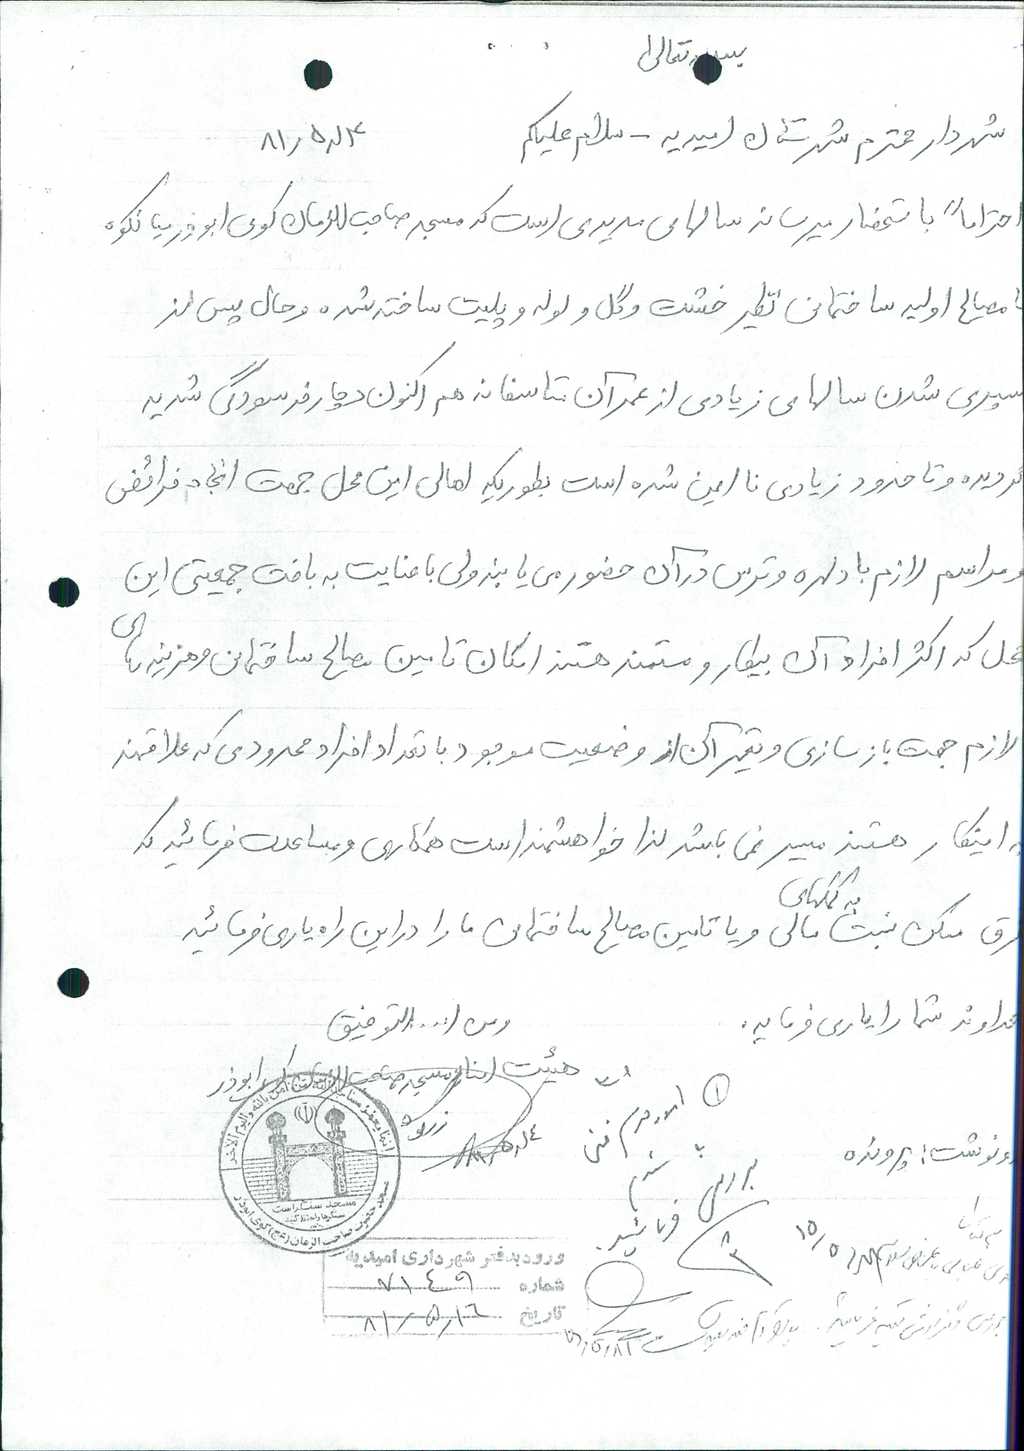 بسمه تعالی
شهردار محترم شهرستان امیدیه - سلام علیکم
۸۱٫۵٫۰۴
احتراماً باستحضار میرساند سالهای مدیدی است که مسجد صاحب الزمان کوی ابوذر میانکوه
با مصالح اولیه ساختمانی نظیر خشت و گل و لوله و پلیت ساخته شده و حال پس از
سپری شدن سالهای زیادی از عمر آن متاسفانه هم اکنون دچار فرسودگی شدید
گردیده و تا حدود زیادی نا ایمن شده است بطوریکه اهالی این محل جهت انجام فرائض
و مراسم لازم با دلهره و ترس در آن حضور می یابند ولی با عنایت به بافت جمعیتی این
محل که اکثر افراد آن بیکار و مستمند هستند امکان تامین مصالح ساختمانی و هزینه های
لازم جهت بازسازی و تعمیر آن از وضعیت موجود با تعداد افراد محدودی که علاقمند
به اینکار هستند میسر نمی باشد لذا خواهشمند است همکاری و مساعدت فرمائید که
طرق ممکن نسبت به کمکهای مالی و یا تامین مصالح ساختمان ما را در این راه یاری فرمائید
خداوند شما را یاری فرماید.
و من ا... التوفیق
هیئت امناء مسجد صاحب الزمان کوی ابوذر
۱ امور محترم فنی
بررسی فرمائید
رونوشت: پرونده
انما یعمر مساجد الله من آمن بالله و الیوم الآخر
مسجد سنگر است
سنگرها را حفظ کنید
مسجد حضرت صاحب الزمان (عج) کوی ابوذر
ورود بدفتر شهرداری امیدیه
شماره ۷۱۴۹
تاریخ ۸۱٫۵٫۱۶